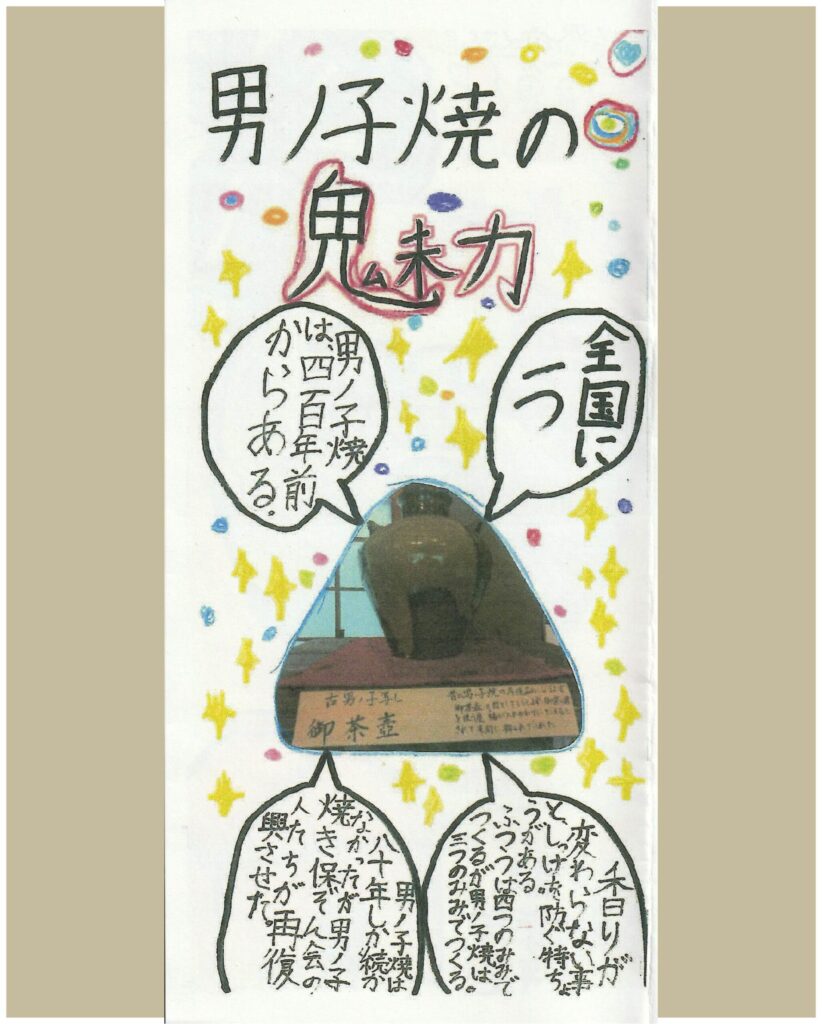 男ノ子焼の
魅力
全国に
う
男ノ子焼
は、四百年前
からある。
古男ノ子写し
御茶壺
香りが
変わらない事
と、しっけを防ぐ特ちょ
うがある
ふつうは四つのみみで
つくるが男ノ子焼は、
三つのみみでつくる。
男ノ子焼は
八十年しか続か
なかったが男ノ子
焼き保ぞん会の
人たちが再復
興させた。